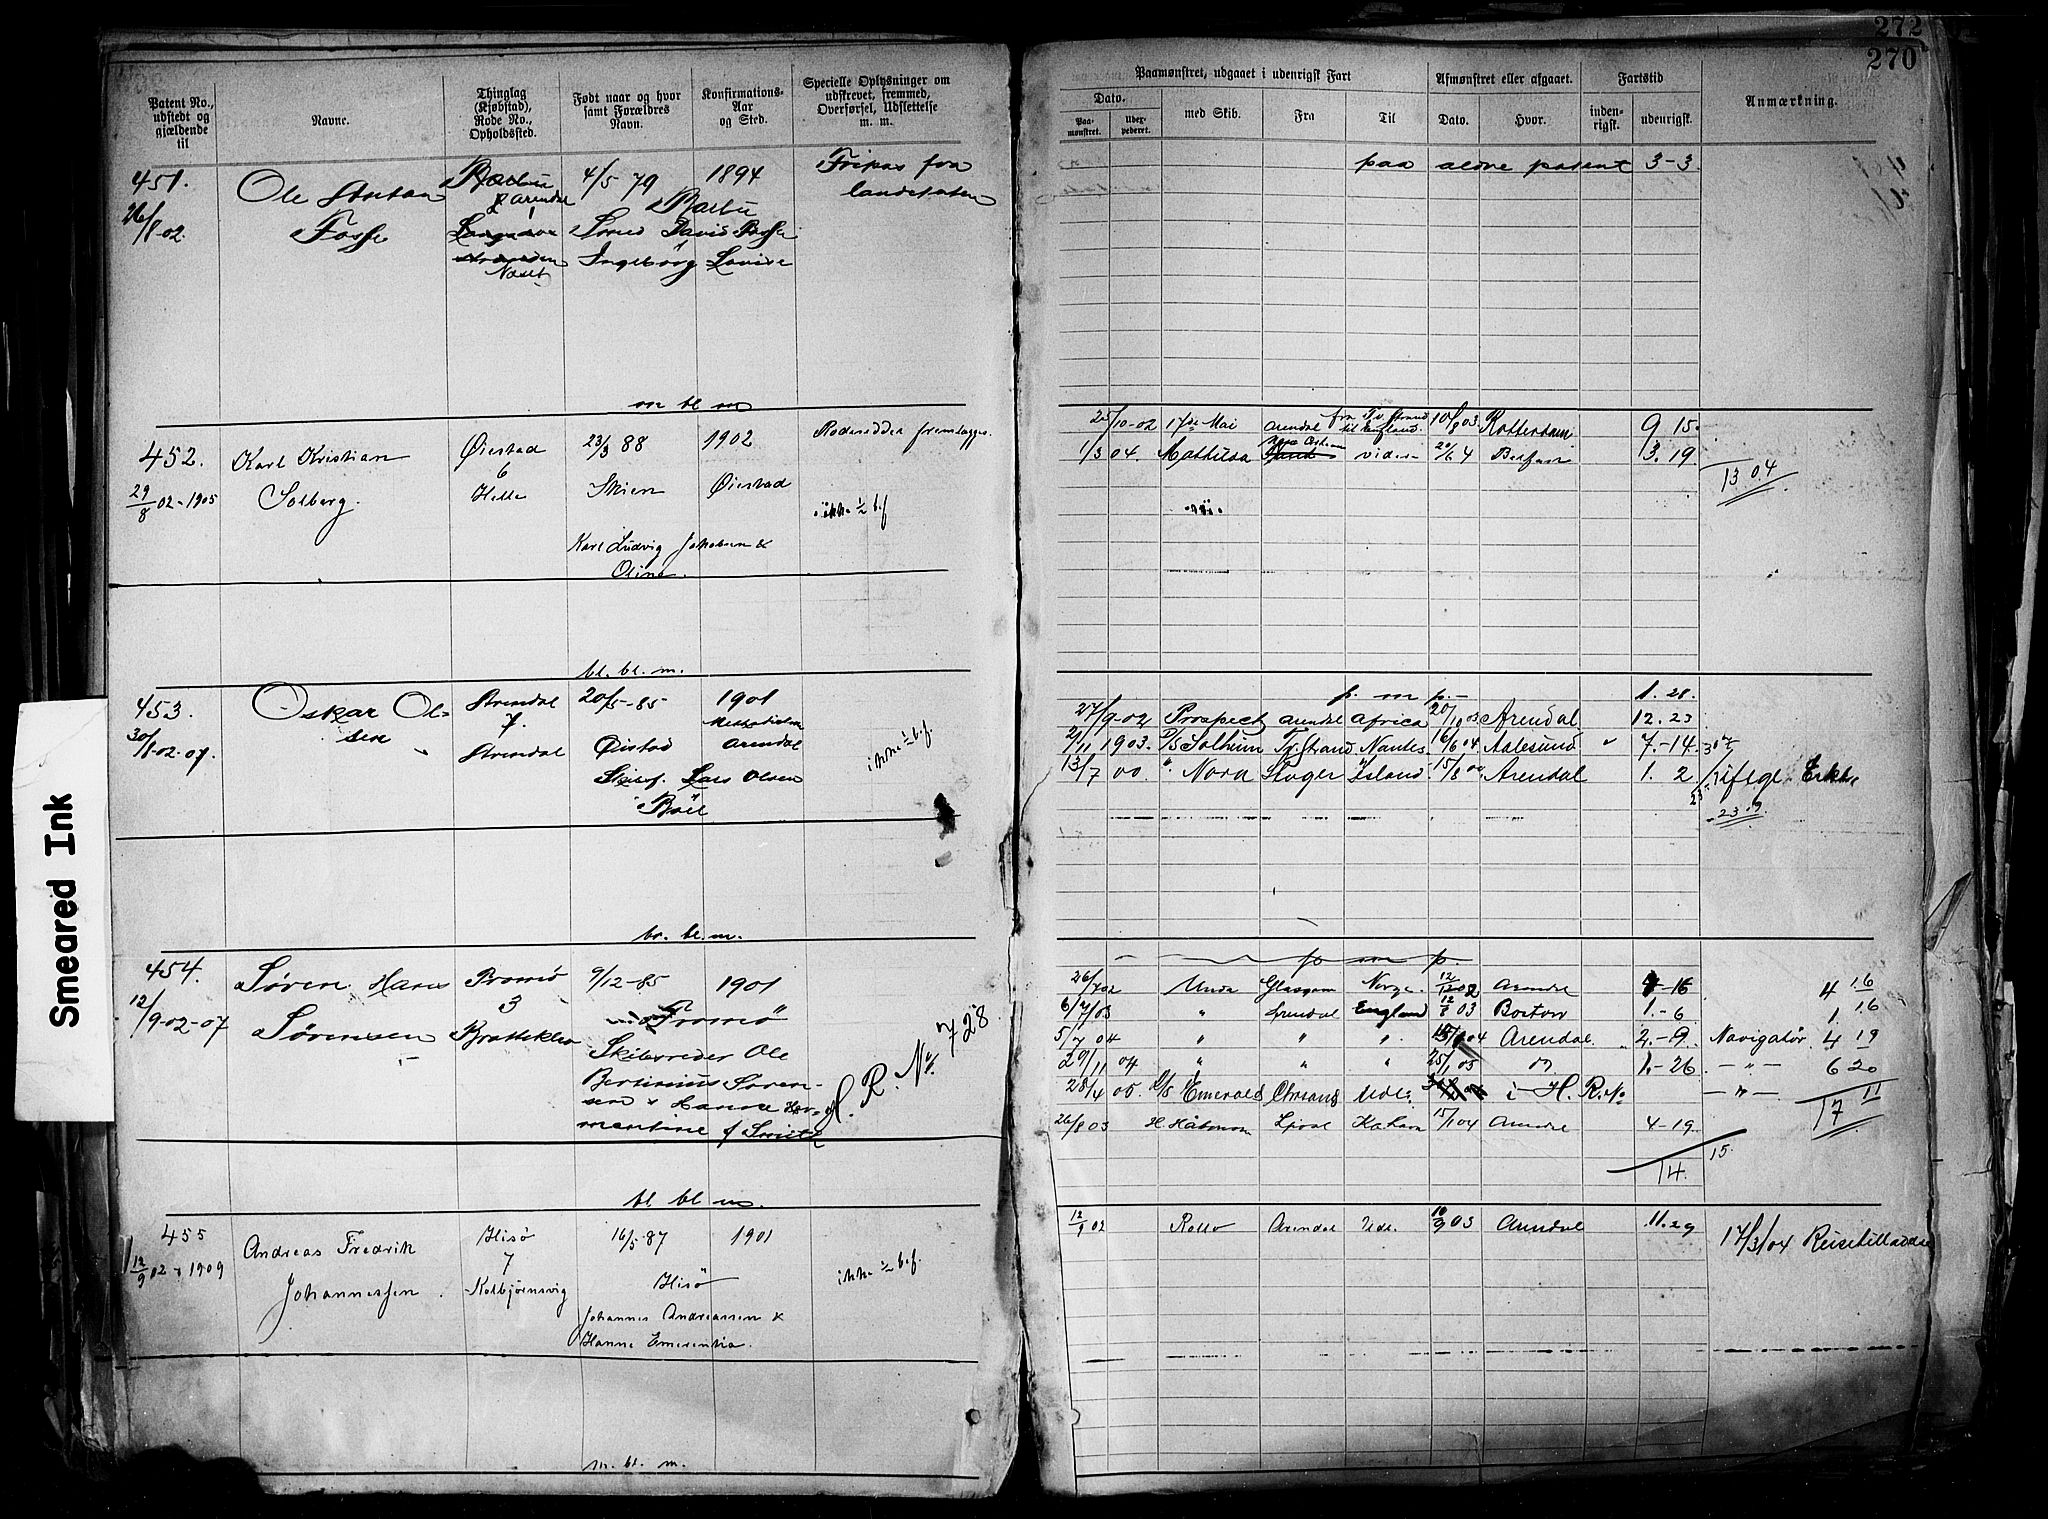 272
270
Smeared Ink
Patent No., udstedt og gjældende til
Navne.
Thinglag (Kjøbstad), Rode No., Opholdssted.
Født naar og hvor samt Forældres Navn.
Konfirmations-Aar og Sted.
Specielle Oplysninger om udskrevet, fremmed, Overførsel, Udslettelse m. m.
Paamønstret, udgaaet i udenrigsk Fart
Afmønstret eller afgaaet.
Fartstid
Anmærkning.
Dato.
Paa-mønstret.
med Skib.
Fra
Til
Dato.
Hvor.
inden-rigsk.
udenrigsk.
451.
26/8-02.
Ole
Fosse
Barbu
Arendal
1
Næset
4/5 79
Barbu
David Fosse
Ingeborg Lovise
1894
Fripas fra
paa ældre patent 3-3
m bl m
452.
29/8 02-1905
Karl Kristian
Solberg.
Øiestad
6
Helle
23/3 88
Skien
Karl Ludvig Jakobsen &
Oline.
1902
Øiestad
Roderulder fremlagges.
ikke ½ bef
25/10-02 17de Mai Arendal til England. 10/8 03 Rotterdam 9 15
1/3 04. Mathilda videre 20/6 4 Belfast 3. 19
13 04
bl. bl. m.
453.
30/8-02-07.
Oskar Ol-
sen
Arendal
7.
Arendal
20/5-85
Øiestad
Lars Olsen
1901
Arendal
ikke ½ bef.
p. m p.-
1. 28.
27/9-02 Prospect Arendal Africa 20/10 03 Arendal 12. 23
2/11 1903. D/S Solheim Tv.strand Nantes 16/6 04 Aalesund " 7.-14
13/7 00 " Nora Island 15/8 00 Arendal 1. 2
23 19
br. bl. m.
454.
12/9-02-07
Søren Hans
Sørensen
Tromø
3
Bratteklev
9/12-85
Tromø
Skibsreder Ole
Bertinius Søren-
sen & Hanne Her-
mentine f Smith
1901
H. R. No. 728.
p m p
26/7 02 Unda Glasgow Norge. 12/12 02 Arendal 16
4 16
6/7 03 " Arendal England 12/8 03 Boston 1.-6
1. 16
5/7 04 " " " 04 Arendal 2.-9 Navigatør 4 19
29/11 04 " " " 25/1 05 1.-26 -"- 6 20
28/4 05 D/S Emerald Chrsand Udl. i H. R. No -"-
17 11
26/8 03 15/1 04 Arendal 4-19
15.
14.
bl bl m.
455
12/9 02-1909
Andreas Fredrik
Johannessen
Hisø
7
Kolbjørnsvig
16/5-87
Hisø
Johannes Andreassen &
Hanne Emerentia.
1901
ikke ½ bef.
12/9 02 Rollo Arendal Udl. 10/9 03 Arendal 11.29
17/3/04 Reisetilladelse
m. bl. m.